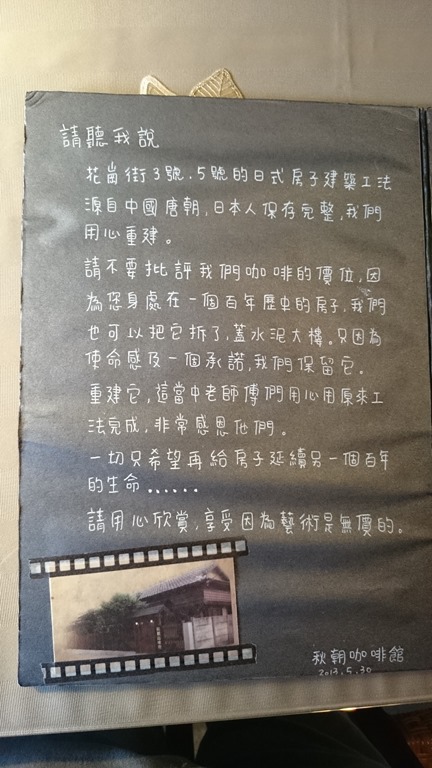 請聽我說
花崗街3號.5號的日式房子建築工法
源自中國唐朝,日本人保存完整,我們
用心重建。
請不要批評我們咖啡的價位,因
為您身處在一個百年歷史的房子,我們
也可以把它拆了,蓋水泥大樓。只因為
使命感及一個承諾,我們保留它。
重建它,這當中老師傅們用心用原來工
法完成,非常感恩他們。
一切只希望再給房子延續另一個百年
的生命......
請用心欣賞,享受因為藝術是無價的。
秋朝咖啡館
2013.5.30